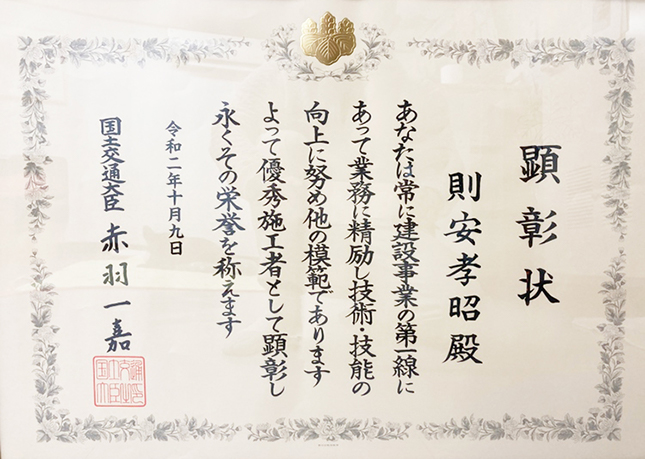 顕彰状
則安孝昭殿
あなたは常に建設事業の第一線に
あって業務に精励し技術・技能の
向上に努め他の模範であります
よって優秀施工者として顕彰し
永くその栄誉を称えます
令和二年十月九日
国土交通大臣 赤羽一嘉